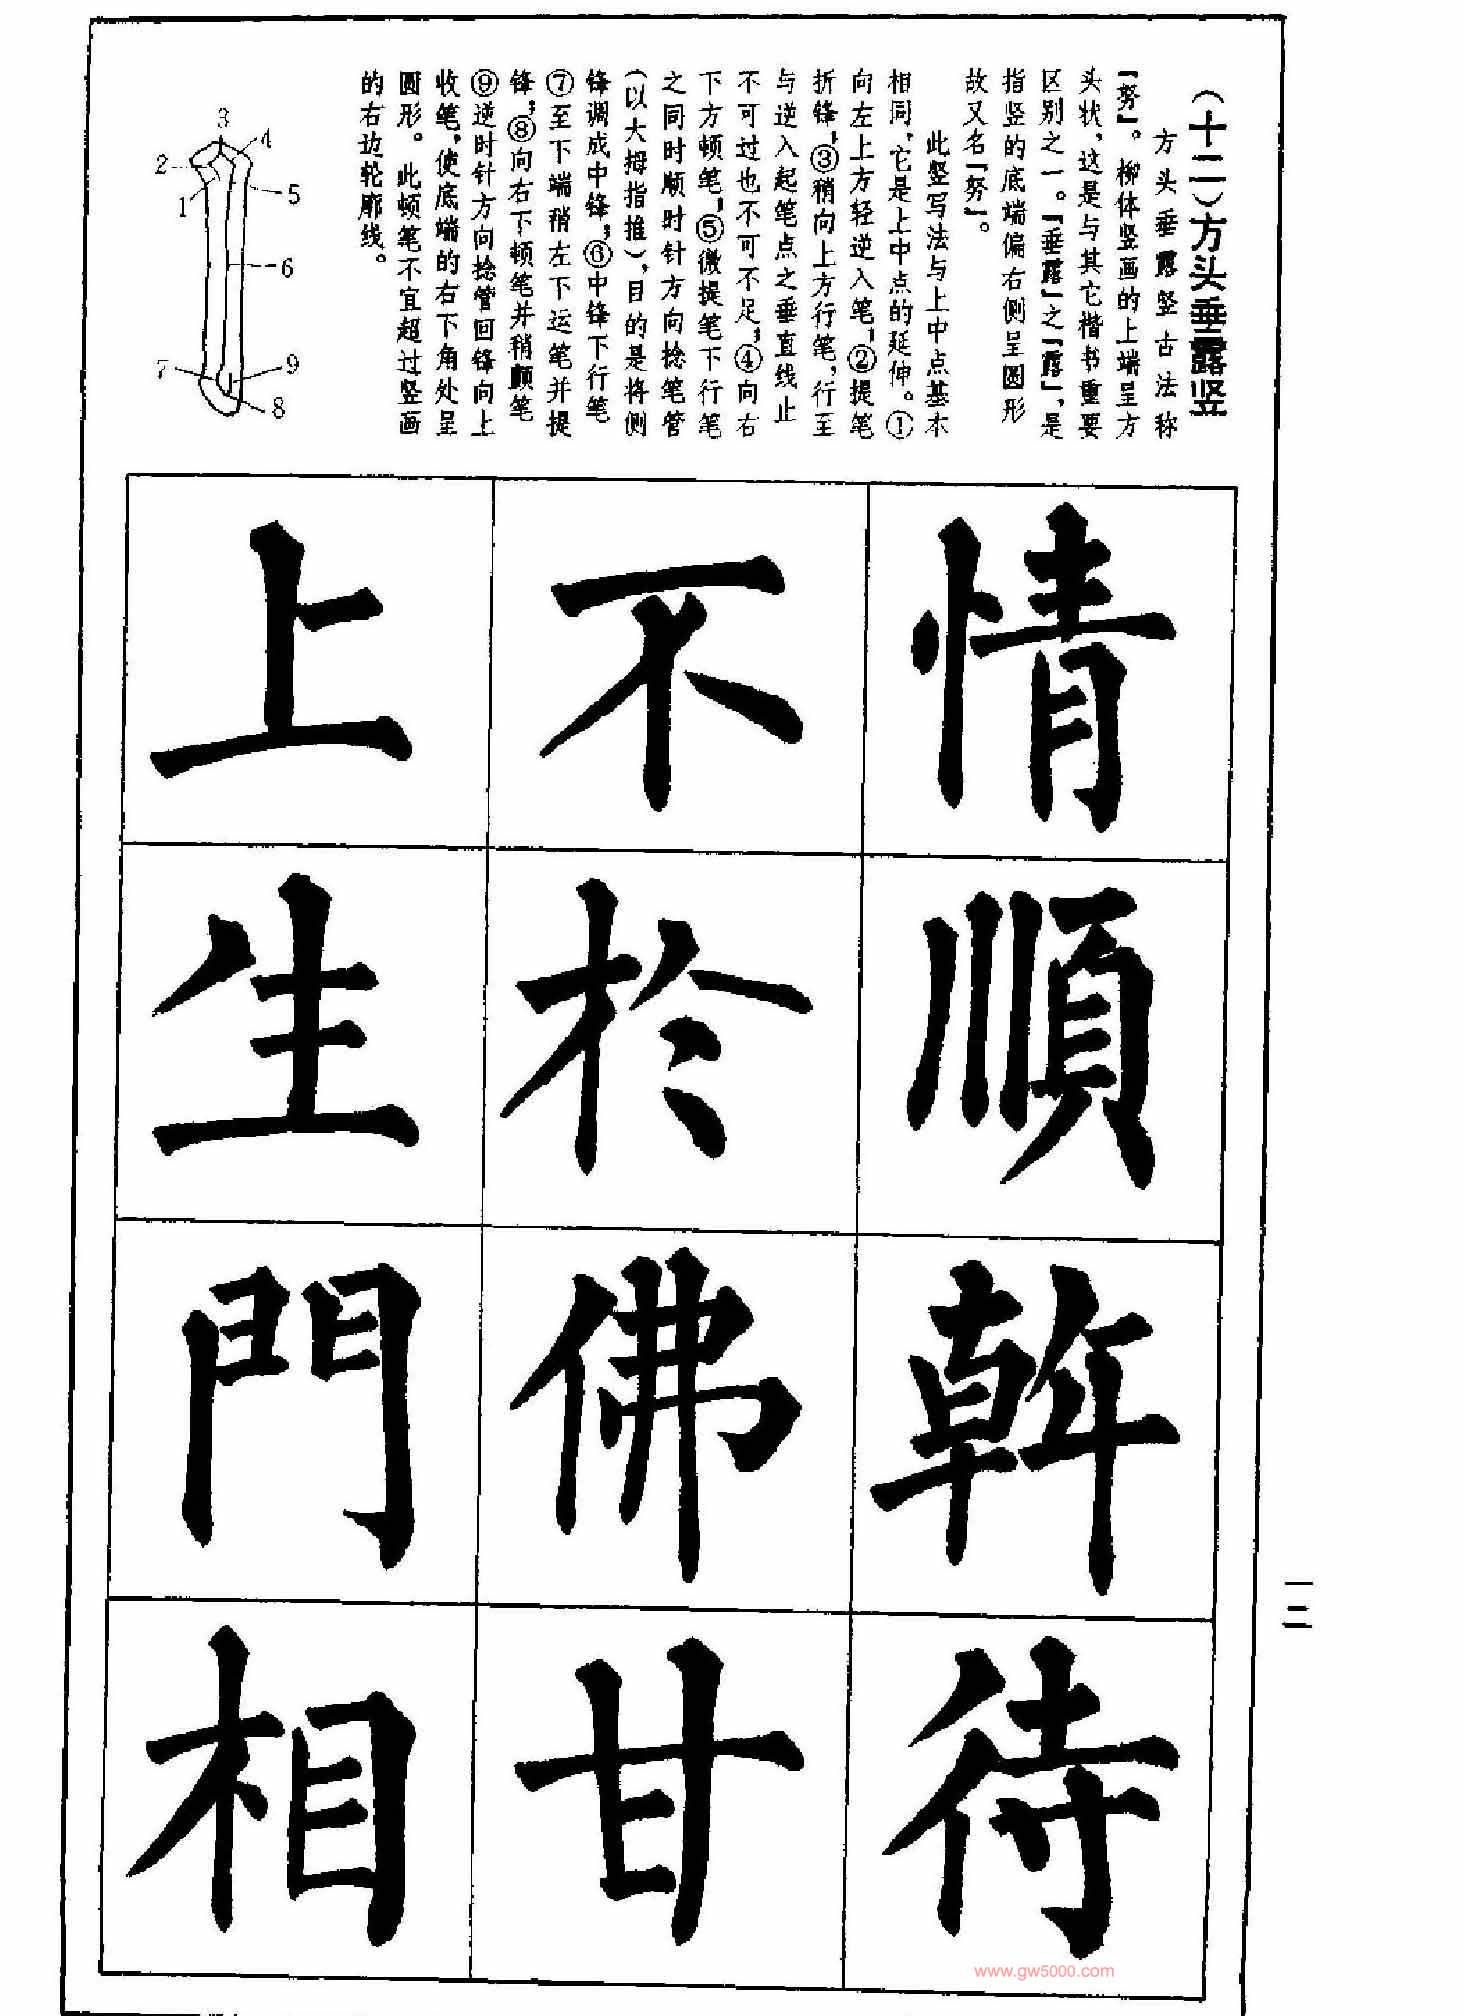 (十二)方头垂露竖
方头垂露竖古法称
『努』。柳体竖画的上端呈方
头状，这是与其它楷书重要
区别之一。『垂露』之『露』，是
指竖的底端偏右侧呈圆形
故又名『努』。
此竖写法与上中点基本
相同，它是上中点的延伸。①
向左上方轻逆入笔；②提笔
折锋；③稍向上方行笔，行至
与逆入起笔点之垂直线止
不可过也不可不足；④向右
下方顿笔；⑤微提笔下行笔
之同时顺时针方向捻笔管
(以大拇指推)，目的是将侧
锋调成中锋；⑥中锋下行笔
⑦至下端稍左下运笔并提
锋；⑧向右下顿笔并稍颤笔
⑨逆时针方向捻管回锋向上
收笔，使底端的右下角处呈
圆形。此顿笔不宜超过竖画
的右边轮廓线。
3
4
2
1
5
6
7
9
8
情
順
幹
待
不
於
佛
甘
上
生
門
相
一二
www.gw5000.com